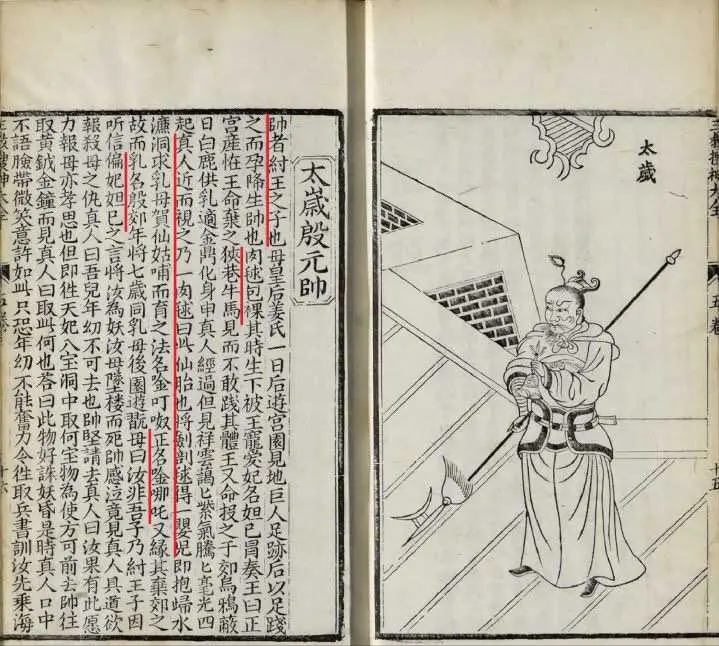 太歲
五卷
十五
太歲殷元帥
帥者紂王之子也母皇后姜氏一日后遊宮園見地巨人足跡后以足踐
之而孕降生帥也肉毬包裸其時生下被王寵愛妃名妲己冐奏王曰正
宮産恠王命棄之狹巷牛馬見而不敢踐其體王又命投之于郊烏鴉蔽
日白鹿供乳適金鼎化身申真人經過但見祥雲靄匕紫氣騰匕毫光四
起真人近而視之乃一肉毬曰此仙胎也將劍剖毬得一嬰兒即抱歸水
濂洞求乳母賀仙姑哺而育之法名唫叮呶正名唫哪吒又緣其棄郊之
故而乳名殷郊年將七歲同乳母後園遊翫毋曰汝非吾子乃紂王子因
听信偏妃妲己之言將汝為妖汝母墜樓而死帥感泣竟見真人具道欲
報殺母之仇真人曰吾兒年幼不可去也帥堅請去真人曰汝果有此愿
力報母亦孝思也但即徃天妃八宝洞中取何宝物為使方可前去帥往
取黃鉞金鐘而見真人曰取此何也答曰此物好誅妖昏是時真人口中
不語臉帶微笑意許如此只恐年幼不能奮力令徃取兵書訓汝先乘海